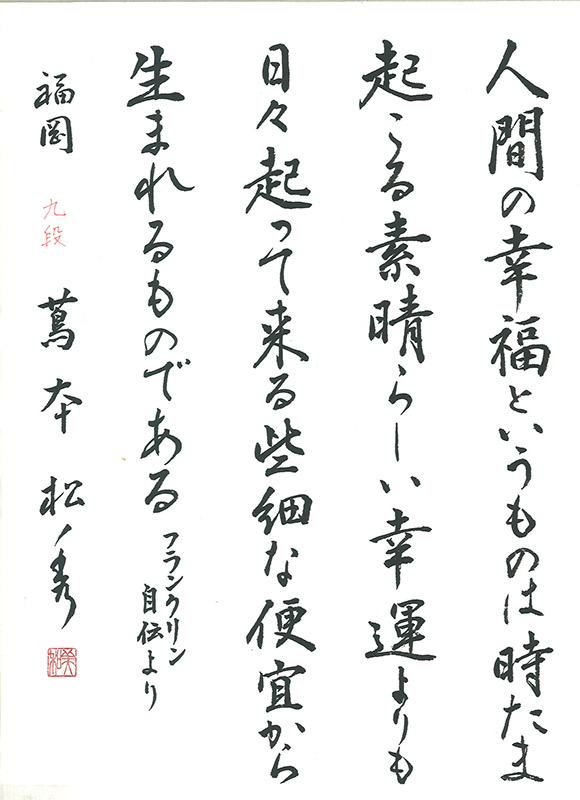 人間の幸福というものは時たま
起こる素晴らしい幸運よりも
日々起って来る些細な便宜から
生まれるものである
フランクリン
自伝より
福岡 九段 蔦本 松秀